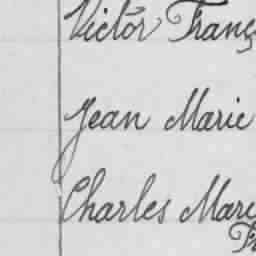 Victor Franç
Jean Marie
Charles Marie